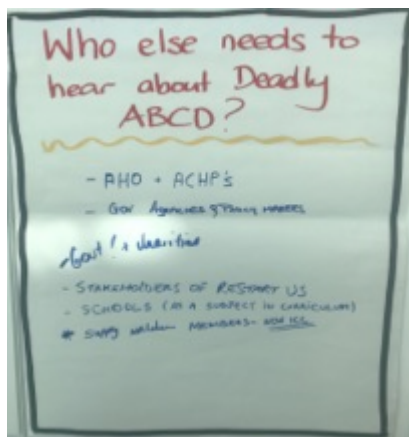 Who else needs to
hear about Deadly
ABCD?
- PHO + ACHP's
- Gov Agencies & Policy makers
- Gov't! +
- STAKEHOLDERS OF RESTART US
- SCHOOLS (AS A SUBJECT IN CURRICULUM)
* MEMBERS -